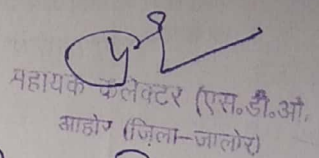 सहायक कलेक्टर (एस.डी.ओ.
आहोर (जिला-जालोर)